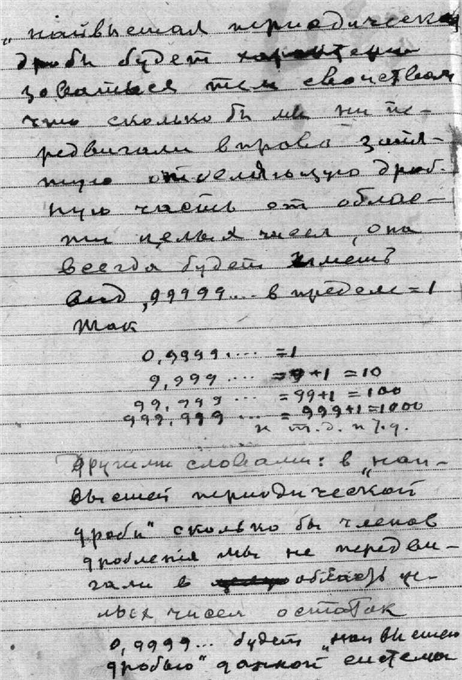 „наивысшая периодическая
дробь будет характери
зоваться тем свойством
что сколько бы мы ни пе-
редвигали вправо запя-
тую отделяющую дроб-
ную часть от облас-
ти целых чисел, она
всегда будет иметь
вид ,99999.... в пределе = 1
Так
0,9999.... = 1
9,999 .... = 9+1 = 10
99,999 .... = 99+1 = 100
999,999 ... = 999+1 = 1000
и т.д. и т.д.
Другими словами: в „наи-
высшей периодической
дроби" сколько бы членов
дробления мы не передви-
гали в область це-
лых чисел остаток
0,9999... будет „наивысшей
дробью" данной системы